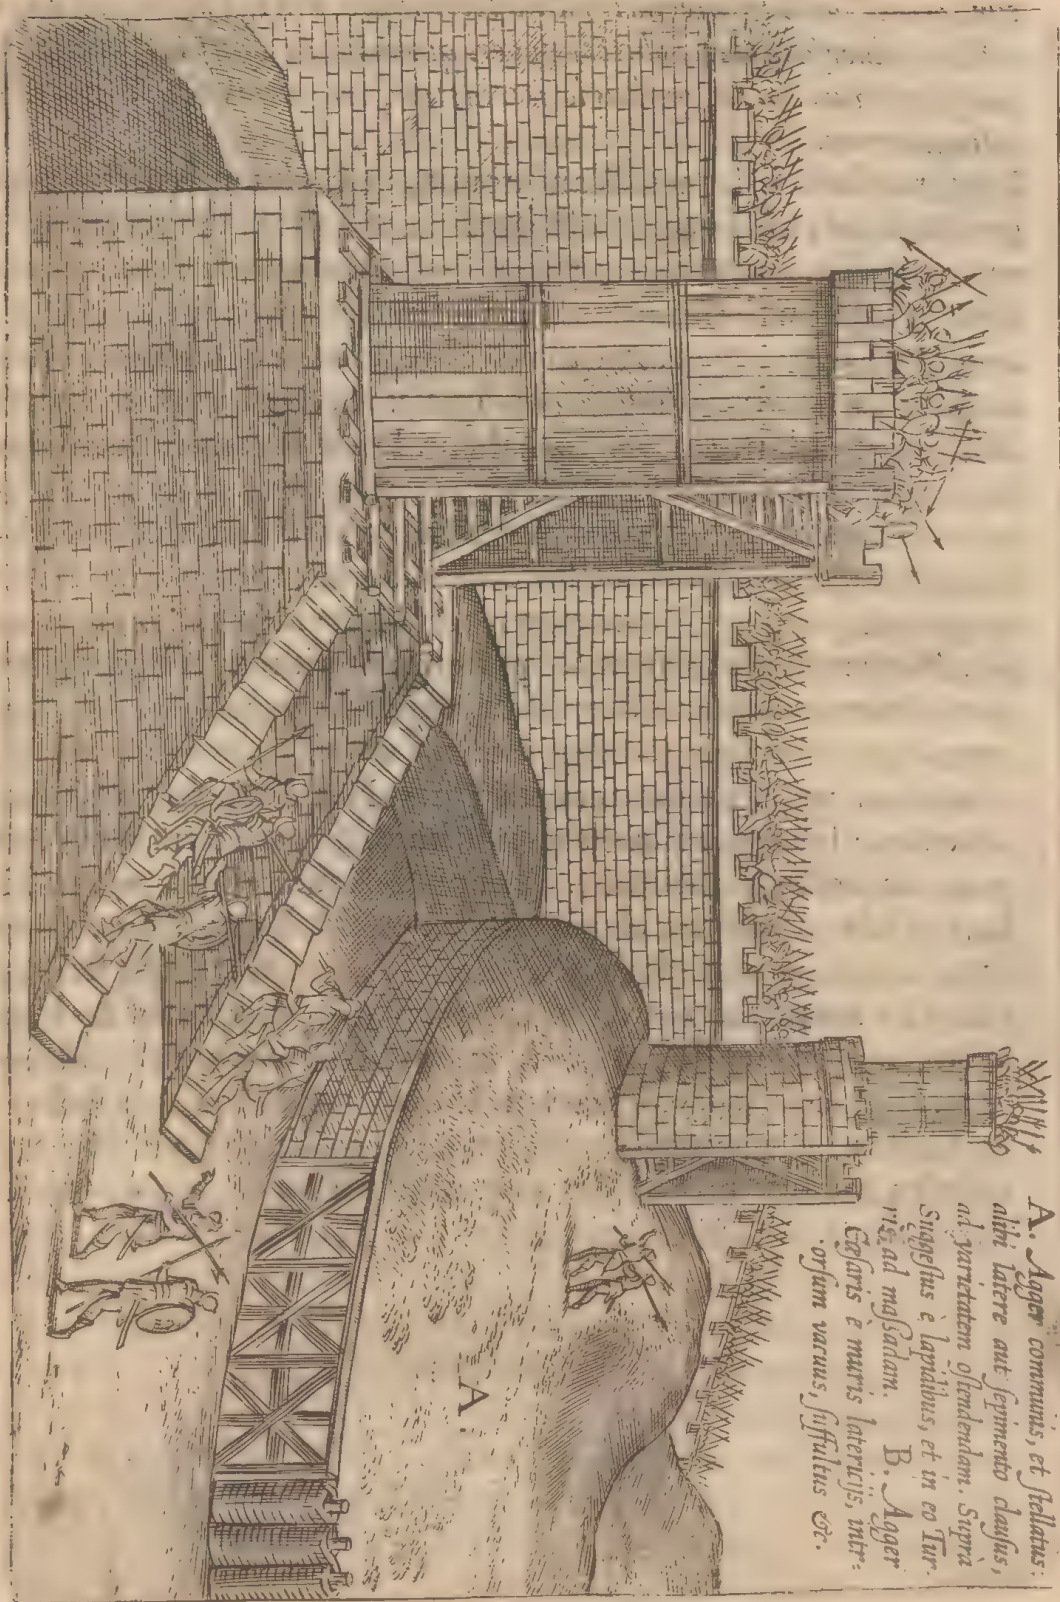 A. Agger communis, et stellatus:
alibi latere aut sepimento clausus,
ad varietatem ostendendam. Suprà
Suggestus è lapidibus, et in eo Tur
ris, ad massadam. B. Agger
Cæsaris è muris latericijs, intr:
orsum vacuus, suffultus &c.
A.